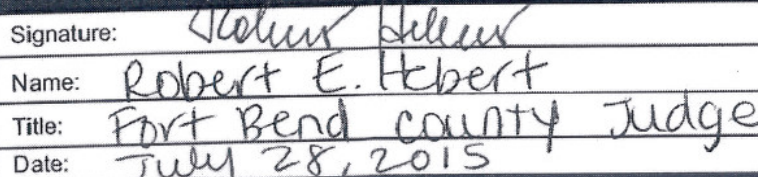 Signature: Robert Hebert
Name: Robert E. Hebert
Title: Fort Bend county Judge
Date: July 28, 2015